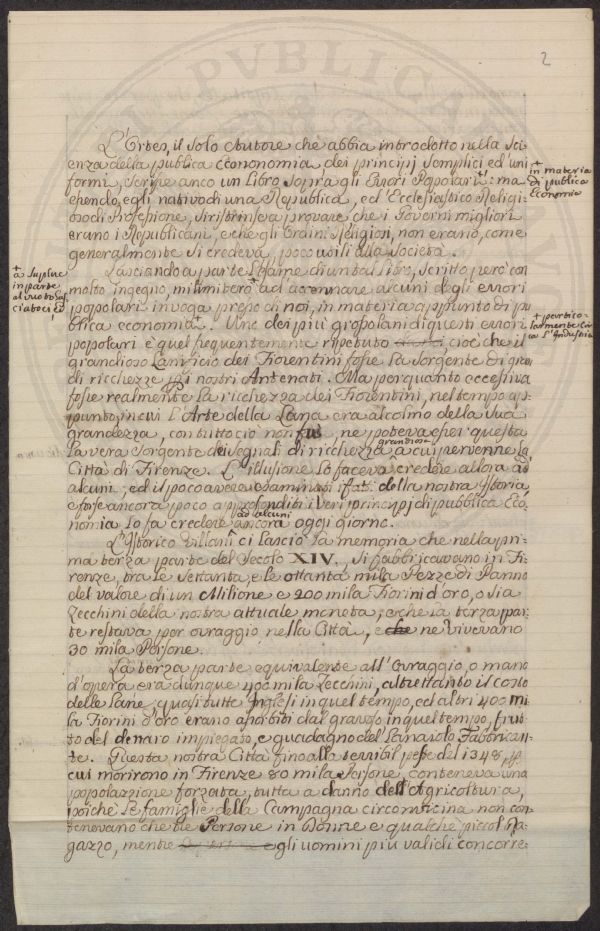 2
L'Ortes, il solo Autore che abbia introdotto nella Sci-
enza della publica economia dei principj semplici ed uni-
formi, scrisse anco un Libro sopra gli Errori Popolari +: ma
essendo egli nativo di una Republica, ed Ecclesiastico Religi-
oso di Professione, si ristrinse a provare che i Governi migliori
erano i Republicani, e che gli Ordini Religiosi, non erano, come
generalmente si credeva, poco utili alla Società.
+ in materia
di publica
Economia
Lasciando a parte l'esame di un tal Libro, scritto però con
molto ingegno, mi limiterò + ad accennare alcuni degli errori
popolari in voga presso di noi, in materia appunto di pu-
blica economia. + Uno dei più grossolani di questi errori
popolari è quel frequentemente ripetuto cioè che il
grandioso Lanificio dei Fiorentini fosse la sorgente di gran-
di ricchezze nostri Antenati. Ma per quanto eccessiva
fosse realmente la ricchezza dei Fiorentini, nel tempo ap-
punto in cui l'Arte della Lana era al colmo della sua
grandezza, con tutto ciò non fu, ne poteva esser questa
la vera sorgente dei segnali di grandiosa ricchezza, a cui pervenne la
Città di Firenze. L'illusione lo faceva credere allora ad
alcuni, ed il poco avere esaminati i fatti della nostra Istoria,
e forse ancora poco approfonditi i veri principj di publica Eco-
nomia lo fa credere ad alcuni ancora oggi giorno.
+ a supplire
in parte
al suo
+ partico-
larmente
l'Industria
L'Istorico Villani ci lasciò la memoria che nella pri-
ma terza parte del Secolo XIV. si fabbricavano in Fi-
renze, tra le settanta, e le ottanta mila Pezze di Panno
del valore di un Milione e 200 mila Fiorini d'oro, o sia
Zecchini della nostra attuale moneta, e che la terza par-
te restava per ovraggio nella Città, e che ne vivevano
30 mila Persone.
La terza parte equivalente all'Ovraggio, o mano
d'opera era dunque 400 mila Zecchini, altrettanto il costo
delle Lane, quasi tutte Inglesi in quel tempo, ed altri 400 mi-
la Fiorini d'oro erano assorbiti dal gravoso in quel tempo, frut-
to del denaro impiegato, e guadagno del Lanaiolo Fabbrican-
te. Questa nostra Città fino alla terribil peste del 1348, p
cui morirono in Firenze 80 mila Persone, conteneva una
popolazione forzata, tutta a danno dell'Agricoltura,
poiché le famiglie della Campagna circonvicina non con-
tenevano che tre Persone in Donne e qualche piccol Ra-
gazzo, mentre gli uomini più validi concorre-